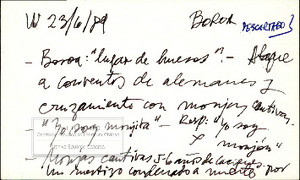 W 23/6/89 BOROA DESCARTADO
- Boroa: "lugar de huesos". - Ataque
a conventos de alemanes y
cruzamiento con monjas cautivas.
- "Yo soy monjita" - Resp: "Yo soy
monjón"
- Monjas cautivas 5-6 años de
Un mestizo condenado a muerte por